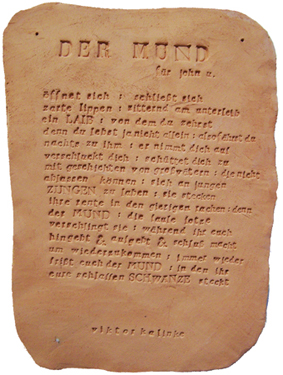 DER MUND
für john u.
öffnet sich ; schließt sich
zarte lippen ; zitternd am unterleib
ein LAIB ; von dem du zehrst
denn du lebst ja nicht allein ; also fährst du
nachts zu ihm ; er nimmt dich auf
verschluckt dich ; schüttet dich zu
mit geschichten von großvätern ; die nicht
ablassen können ; sich an jungen
ZUNGEN zu laben ; sie stecken
ihre in den gierigen rachen ; denn
der MUND ; die faule fotze
verschlingt sie ; während ihr euch
hingebt & aufgebt & schluß macht
um wiederzukommen ; immer wieder
frißt euch der MUND ; in den ihr
eure schlaffen SCHWÄNZE steckt
viktor kalinke